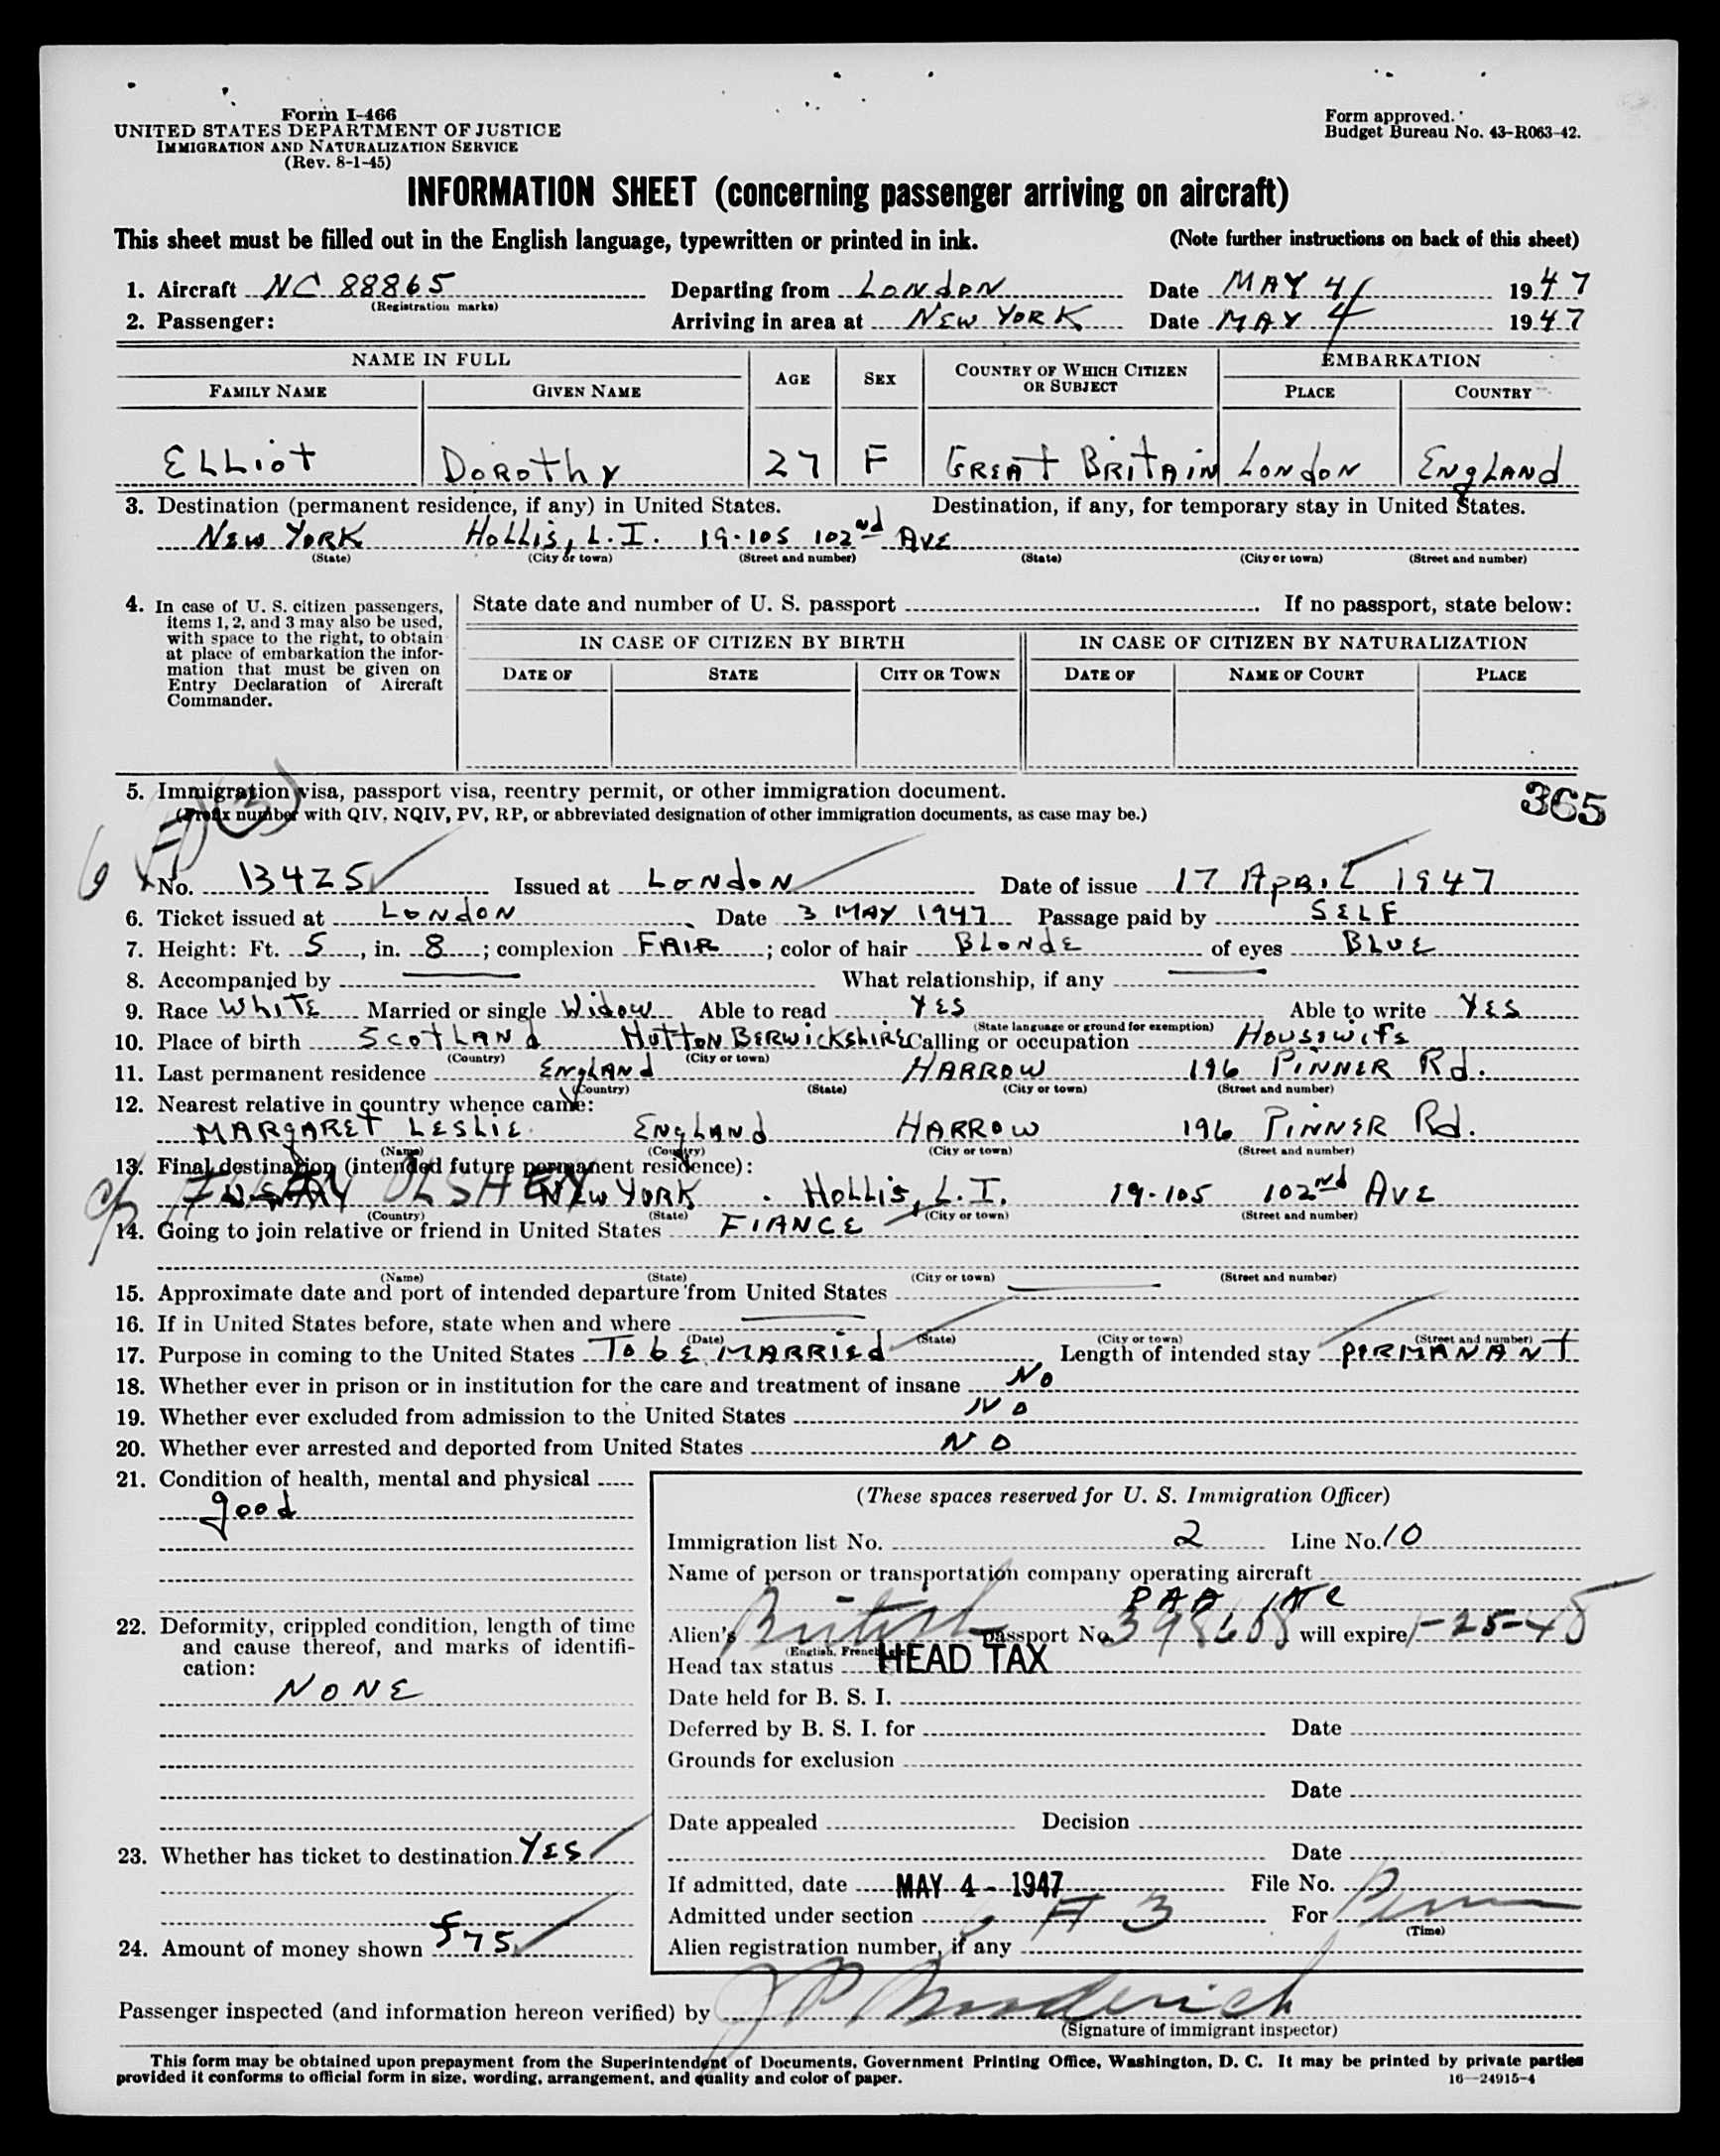 Form I-466
UNITED STATES DEPARTMENT OF JUSTICE
IMMIGRATION AND NATURALIZATION SERVICE
(Rev. 8-1-45)
Form approved.
Budget Bureau No. 43-R063-42.
INFORMATION SHEET (concerning passenger arriving on aircraft)
This sheet must be filled out in the English language, typewritten or printed in ink. (Note further instructions on back of this sheet)
1. Aircraft NC 88865 Departing from LONdON Date MAY 4 1947
(Registration marks)
2. Passenger: Arriving in area at NEW YORK Date MAY 4 1947
NAME IN FULL AGE SEX COUNTRY OF WHICH CITIZEN OR SUBJECT EMBARKATION
FAMILY NAME GIVEN NAME PLACE COUNTRY
ELLiot DOROthy 27 F GREAT BRITAIN LONdON ENgLANd
3. Destination (permanent residence, if any) in United States. Destination, if any, for temporary stay in United States.
NEW YORK HOLLiS, L.I. 19-105 102nd AVE
(State) (City or town) (Street and number) (State) (City or town) (Street and number)
4. In case of U. S. citizen passengers, items 1, 2, and 3 may also be used, with space to the right, to obtain at place of embarkation the information that must be given on Entry Declaration of Aircraft Commander.
State date and number of U. S. passport If no passport, state below:
IN CASE OF CITIZEN BY BIRTH IN CASE OF CITIZEN BY NATURALIZATION
DATE OF STATE CITY OR TOWN DATE OF NAME OF COURT PLACE
5. Immigration visa, passport visa, reentry permit, or other immigration document. 365
(Prefix number with QIV, NQIV, PV, RP, or abbreviated designation of other immigration documents, as case may be.)
No. 13425 Issued at LONdON Date of issue 17 APRIL 1947
6. Ticket issued at LONdON Date 3 MAY 1947 Passage paid by SELF
7. Height: Ft. 5, in. 8; complexion FAIR; color of hair BLONdE of eyes BLUE
8. Accompanied by What relationship, if any
9. Race WhiTE Married or single Widow Able to read YES Able to write YES
(State language or ground for exemption)
10. Place of birth SCOTLANd HUTTON BERWICKShiRE Calling or occupation HOUSEWifE
(Country) (City or town)
11. Last permanent residence ENgLANd HARROW 196 PiNNER Rd.
(Country) (State) (City or town) (Street and number)
12. Nearest relative in country whence came:
MARgARET LESLiE ENgLANd HARROW 196 PiNNER Rd.
(Name) (Country) (City or town) (Street and number)
13. Final destination (intended future permanent residence):
OLSHEY NEW YORK HOLLiS, L.I. 19-105 102nd AVE
(Country) (State) (City or town) (Street and number)
14. Going to join relative or friend in United States FIANCE
(Name) (State) (City or town) (Street and number)
15. Approximate date and port of intended departure from United States
16. If in United States before, state when and where
(Date) (State) (City or town) (Street and number)
17. Purpose in coming to the United States To bE MARRiEd Length of intended stay PERMANANT
18. Whether ever in prison or in institution for the care and treatment of insane No
19. Whether ever excluded from admission to the United States NO
20. Whether ever arrested and deported from United States NO
21. Condition of health, mental and physical
good
22. Deformity, crippled condition, length of time and cause thereof, and marks of identification:
NONE
23. Whether has ticket to destination YES
24. Amount of money shown £75
(These spaces reserved for U. S. Immigration Officer)
Immigration list No. 2 Line No. 10
Name of person or transportation company operating aircraft
PAA
Alien's British passport No. will expire
(English, French, etc.)
Head tax status HEAD TAX
Date held for B. S. I.
Deferred by B. S. I. for Date
Grounds for exclusion
Date
Date appealed Decision
Date
If admitted, date MAY 4 - 1947 File No.
Admitted under section A 3 For Perm
(Time)
Alien registration number, if any
Passenger inspected (and information hereon verified) by
(Signature of immigrant inspector)
This form may be obtained upon prepayment from the Superintendent of Documents, Government Printing Office, Washington, D. C. It may be printed by private parties
provided it conforms to official form in size, wording, arrangement, and quality and color of paper. 16—24915-4